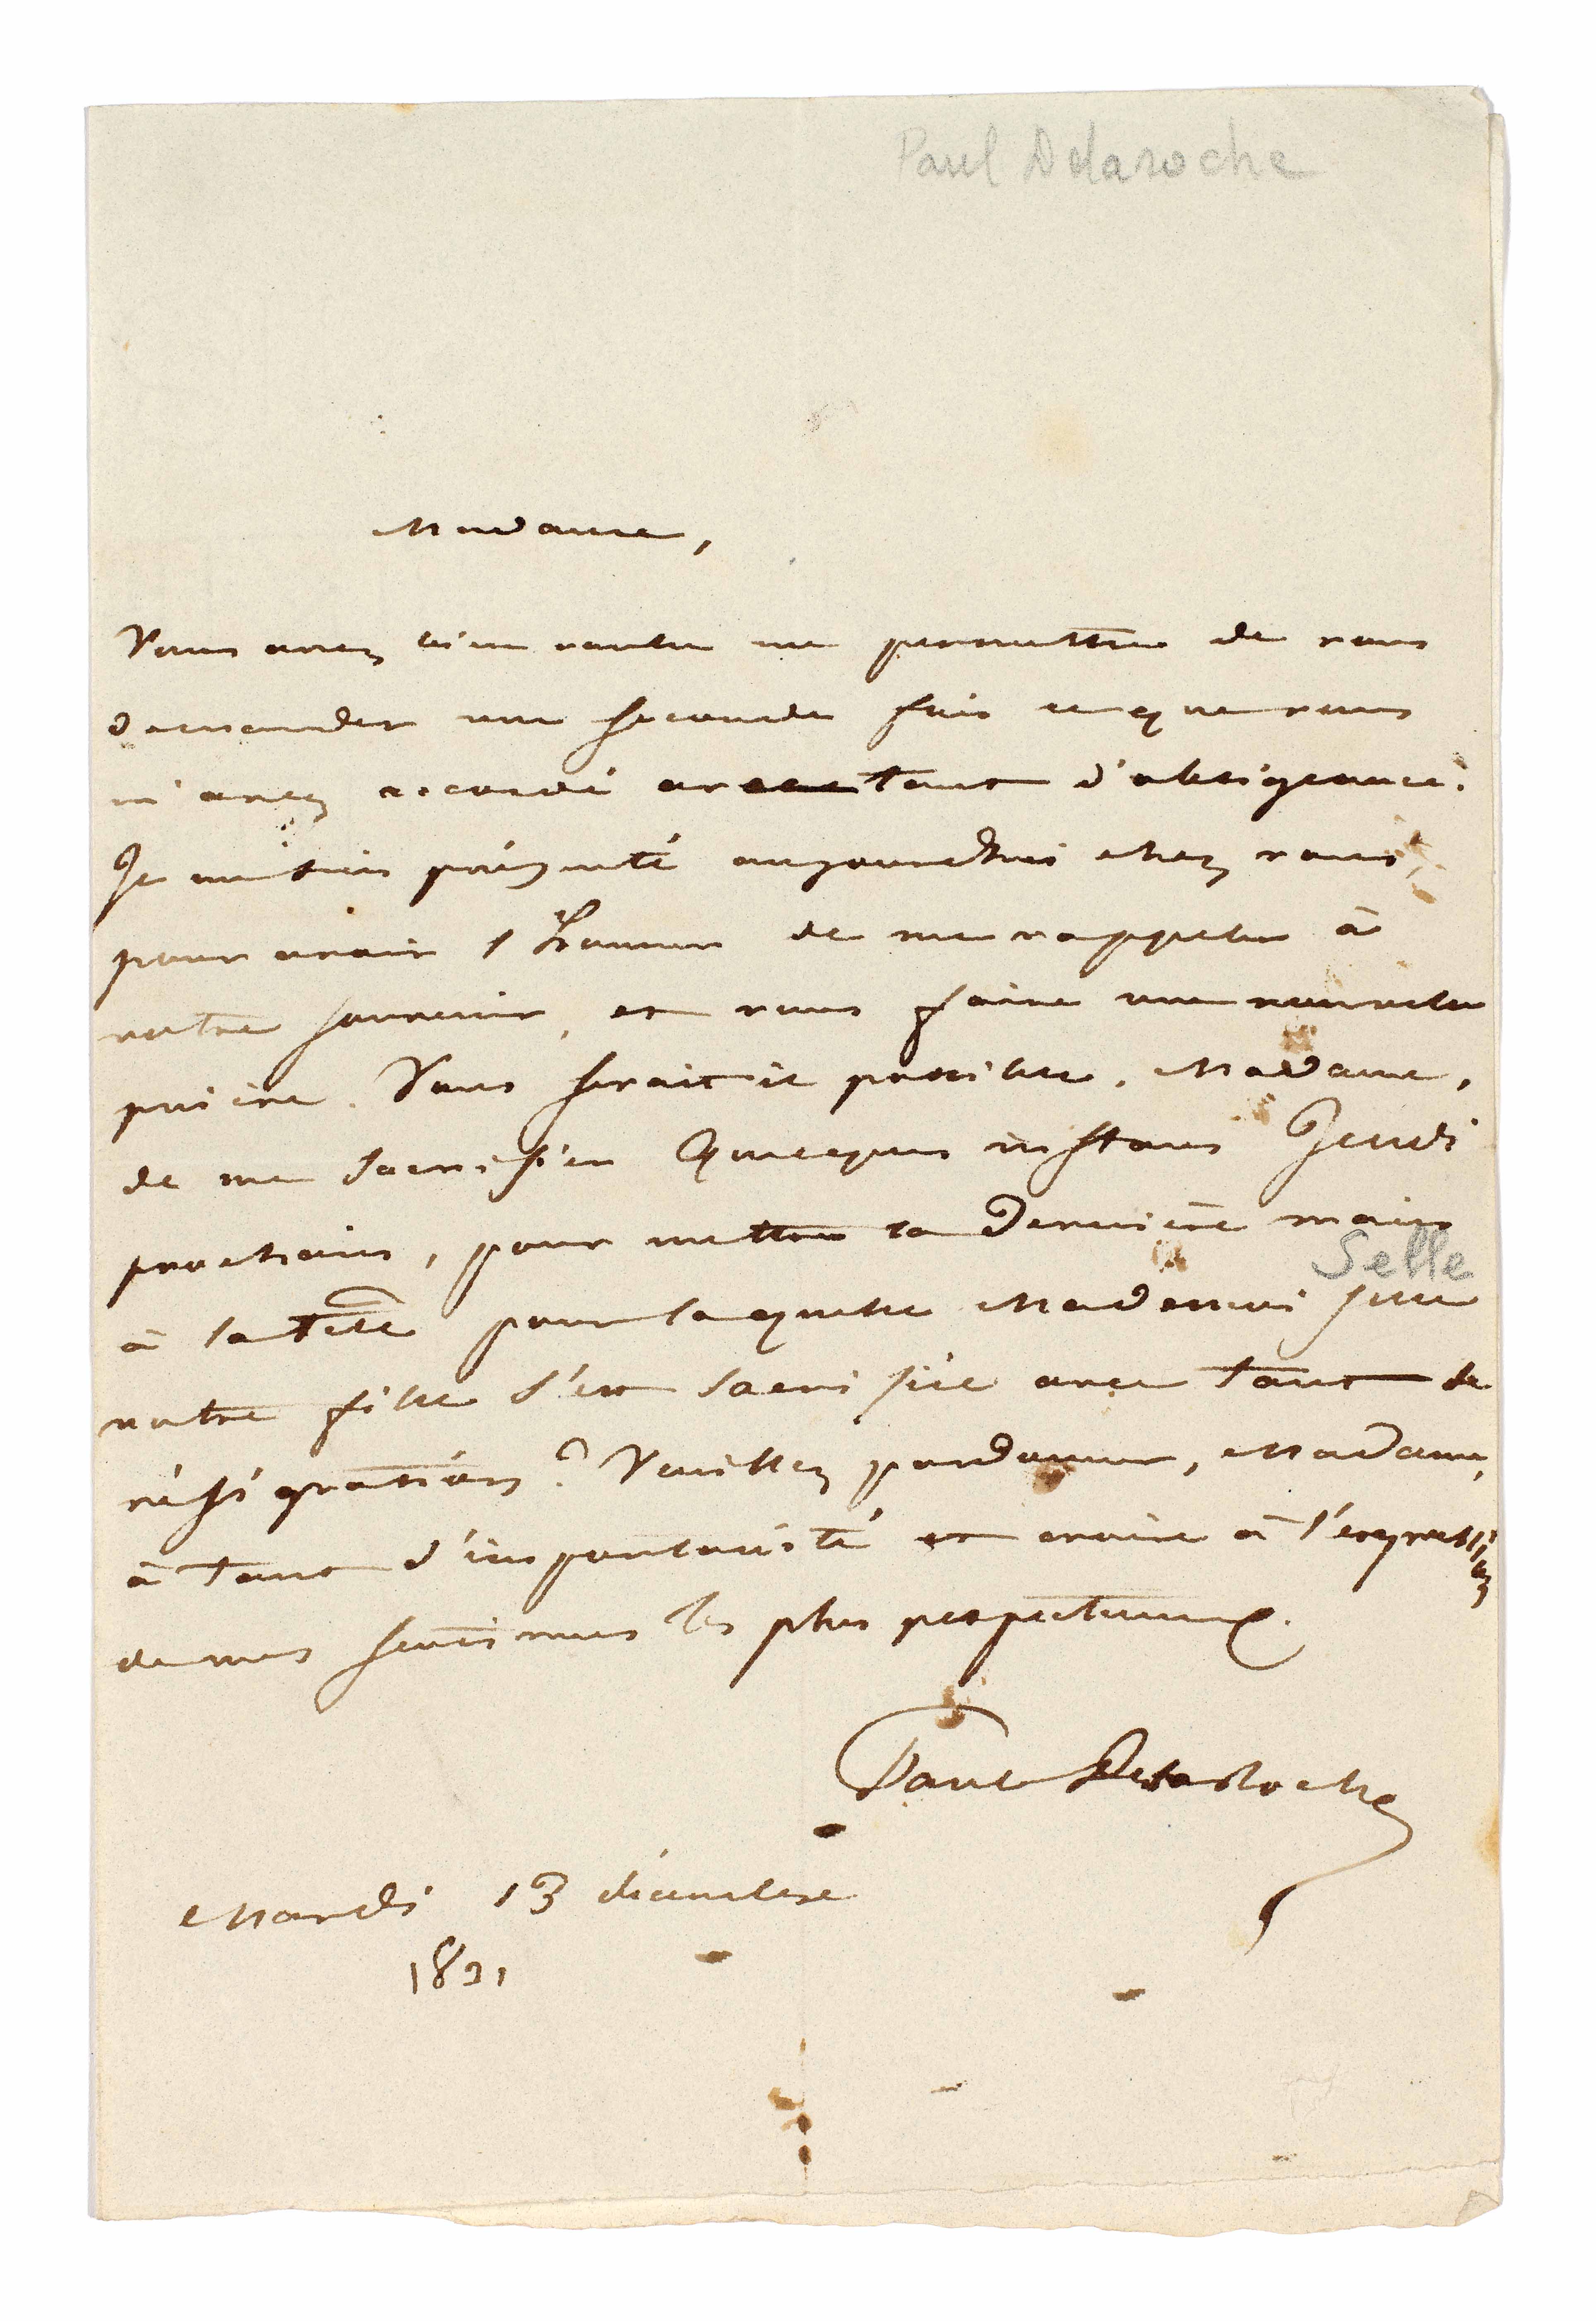 Paul Delaroche
Madame,
Vous avez bien voulu me permettre de vous
demander une seconde fois ce que vous
m'avez accordé avec tant d'obligeance.
Je me suis présenté aujourd'hui chez vous,
pour avoir l'honneur de me rappeler à
votre souvenir, et vous faire une nouvelle
prière. Vous serait il possible, Madame,
de me sacrifier quelques instans Jeudi
prochain, pour mettre la dernière main
Selle
à la tête pour laquelle Mademoiselle
votre fille s'est sacrifiée avec tant de
résignation? Veuillez pardonner, Madame,
à tant d'importunité et croire à l'expression
de mes sentimens les plus respectueux.
Paul DelaRoche
Mardi 13 décembre
1831